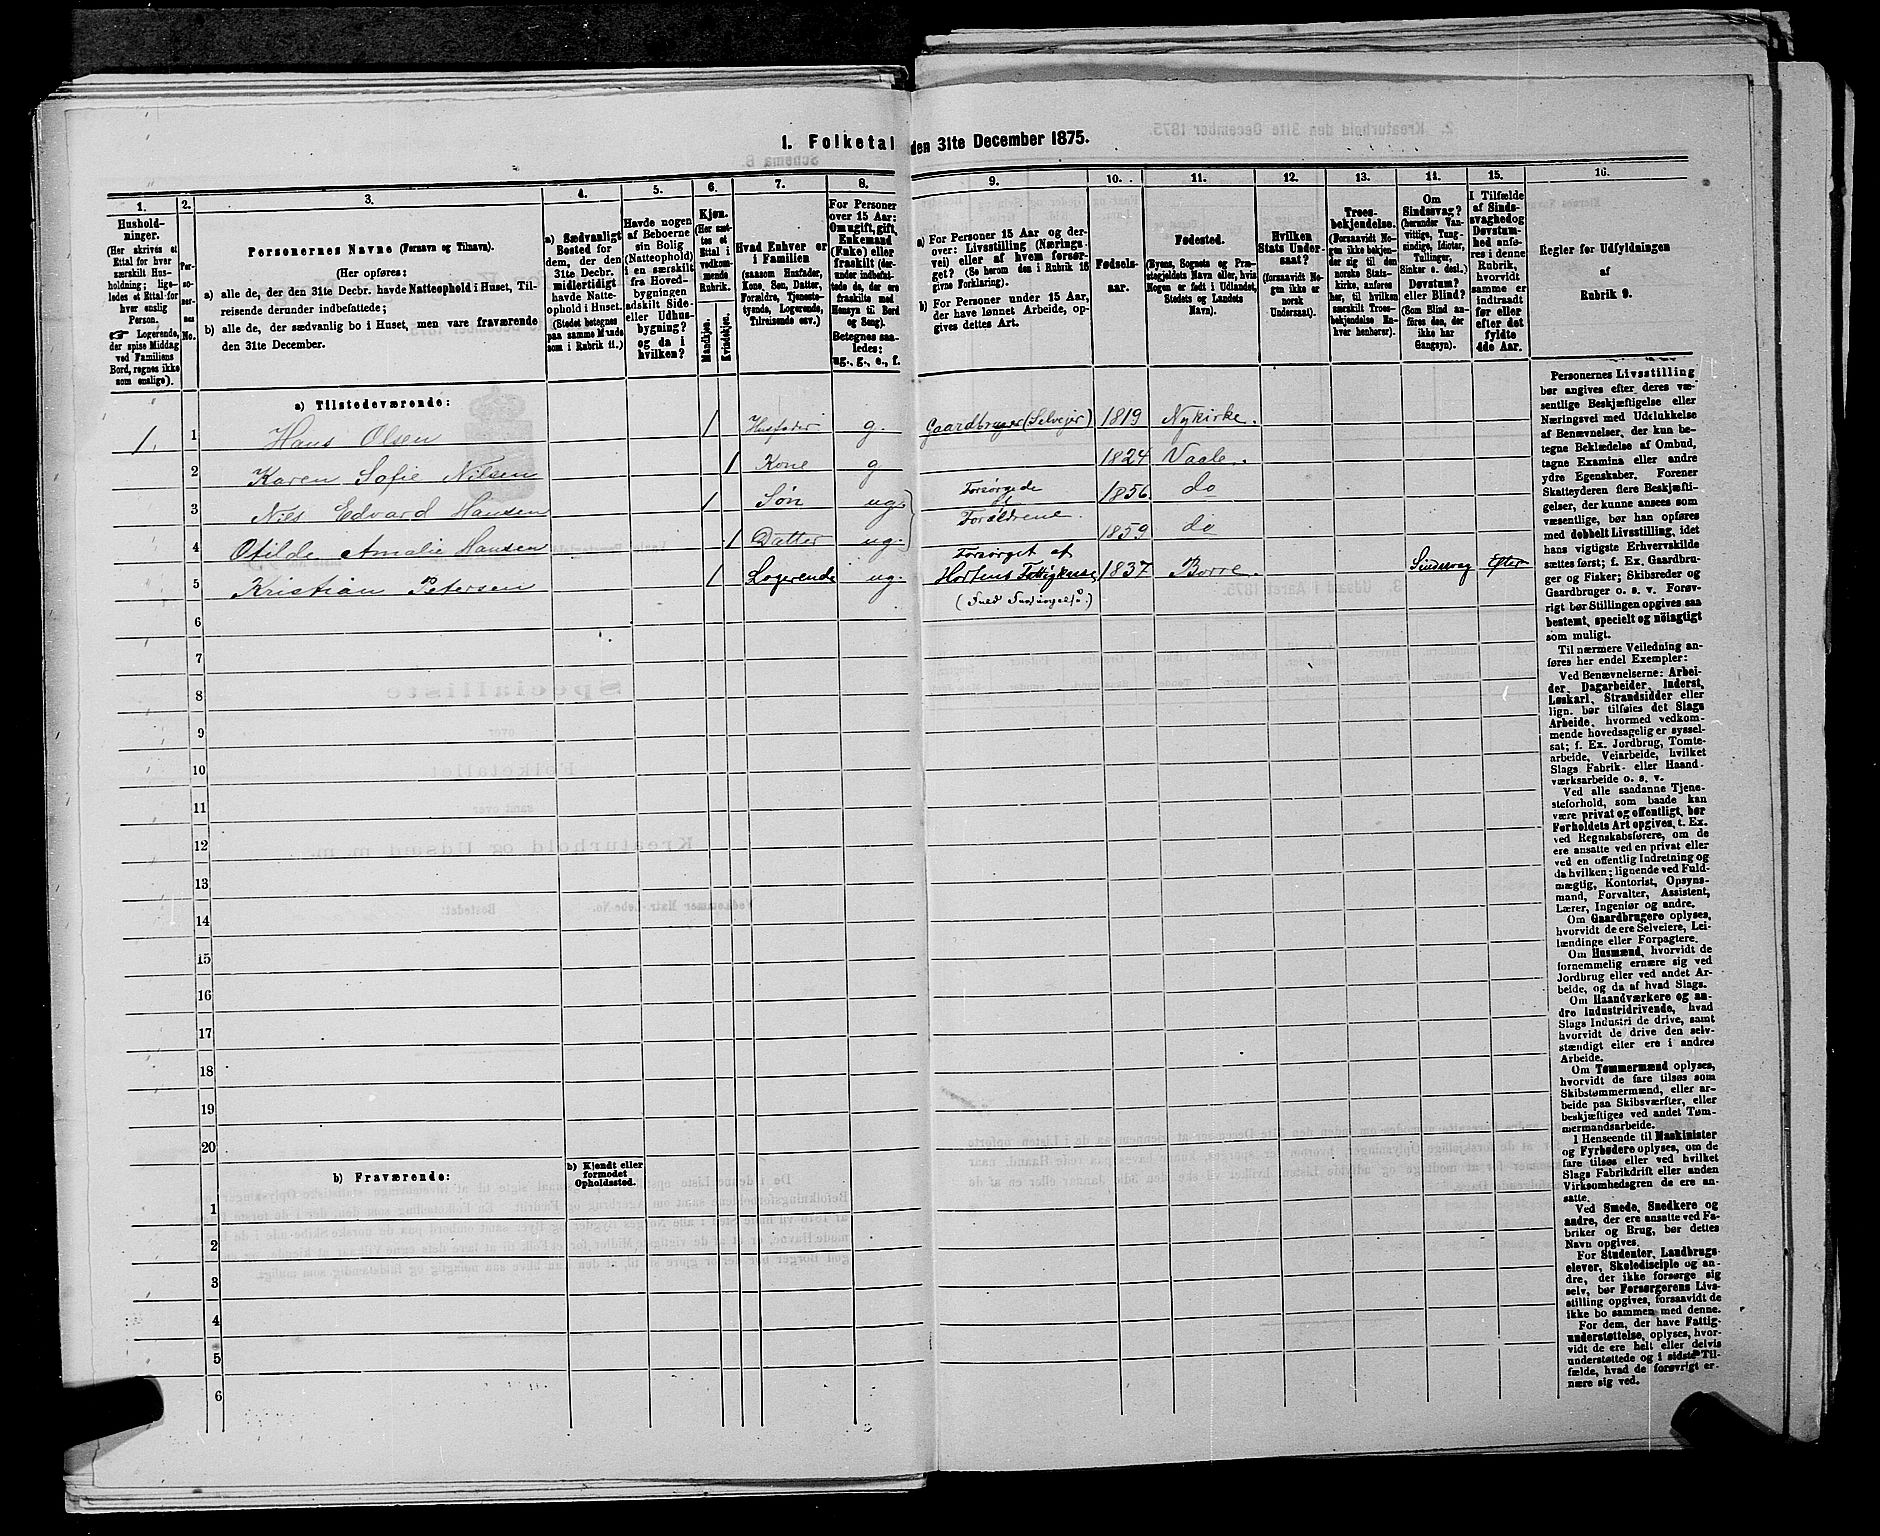 1. Folketal den 31te December 1875.
1. 2. 3. 4. 5. 6. 7. 8. 9. 10. 11. 12. 13. 14. 15. 16.
Hushold-
ninger.
(Her skrives et
Ettal for hver
særskilt Hus-
holdning; lige-
ledes et Ettal for
hver enslig
Person.
☞ Logerende,
der spise Middag
ved Familiens
Bord, regnes ikke
som enslige).
Per-
so-
ner-
nes
No.
Personernes Navne (Fornavn og Tilnavn).
(Her opføres:
a) alle de, der den 31te Decbr. havde Natteophold i Huset, Til-
reisende derunder indbefattede;
b) alle de, der sædvanlig bo i Huset, men vare fraværende
den 31te December.
a) Sædvanligt
Bosted for
dem, der den
31te Decbr.
midlertidigt
havde Natte-
ophold i Huset.
(Stedet betegnes
paa samme Maade
som i Rubrik 11.)
Havde nogen
af Beboerne
sin Bolig
(Natteophold)
i en særskilt
fra Hoved-
bygningen
adskilt Side-
eller Udhus-
bygning?
og da i
hvilken?
Kjøn.
(Her sæt-
tes et
Ettal i
vedkom-
mende
Rubrik.
Mandkjøn.
Kvindekjøn.
Hvad Enhver er
i Familien
(saasom Husfader,
Kone, Søn, Datter,
Forældre, Tjeneste-
tyende, Logerende,
Tilreisende osv.)
For Personer
over 15 Aar:
Om ugift, gift,
Enkemand
(Enke) eller
fraskilt (der-
under indbefat-
tede de, der ere
fraskilte med
Hensyn til Bord
og Seng).
Betegnes saa-
ledes:
ug., g., e., f.
a) For Personer 15 Aar og der-
over: Livsstilling (Nærings-
vei) eller af hvem forsør-
get? (Se herom den i Rubrik 16
givne Forklaring).
b) For Personer under 15 Aar,
der have lønnet Arbeide, op-
gives dettes Art.
Fødsels-
aar.
Fødested.
(Byens, Sognets og Præ-
stegjeldets Navn eller, hvis
Nogen er født i Udlandet,
Stedets og Landets
Navn).
Hvilken
Stats Under-
saat?
(forsaavidt No-
gen ikke er
norsk
Undersaat).
Troes-
bekjendelse.
(Forsaavidt No-
gen ikke bekjen-
der sig til den
norske Stats-
kirke, anføres
her, til hvilken
særskilt Troes-
bekjendelse En-
hver henhører).
Om
Sindssvag?
(herunder Van-
vittige, Tung-
sindige, Idioter,
Tullinger,
Sinker o. desl.)
Døvstum?
eller Blind?
(Som Blind an-
føres den, der
ikke har
Gangsyn).
I Tilfælde
af Sinds-
svaghed og
Døvstum-
hed anfø-
res i denne
Rubrik,
hvorvidt
samme er
indtraadt
før eller
efter det
fyldte
4de Aar.
Regler for Udfyldningen
af
Rubrik 9.
a) Tilstedeværende:
1. 1 Hans Olsen 1 Husfader g. Gaardbruger (Selvejer) 1819 Nykirke.
2 Karen Sofie Nilsen 1 Kone g 1824 Vaale.
3 Nils Edvard Hansen 1 Søn ug. Forsørgede af 1856 do
4 Otilde Amalie Hansen 1 Datter ug. Forældrene. 1859 do
5 Kristian Petersen 1 Logerende ug. Forsørget af Hortens 1837 Borre. Sindssvag Efter
6
7
8
9
10
11
12
13
14
15
16
17
18
19
20
b) Fraværende:
b) Kjendt eller
formodet
Opholdssted.
1
2
3
4
5
6
Personernes Livsstilling
bør angives efter deres væ-
sentlige Beskjæftigelse eller
Næringsvei med Udelukkelse
af Benævnelser, der kun be-
tegne Beklædelse af Ombud,
tagne Examina eller andre
ydre Egenskaber. Forener
Skatteyderen flere Beskjæfti-
gelser, der kunne ansees som
væsentlige, bør han opføres
med dobbelt Livsstilling, idet
hans vigtigste Erhvervskilde
sættes først; f. Ex. Gaardbru-
ger og Fisker; Skibsreder og
Gaardbruger o. s. v. Forøv-
rigt bør Stillingen opgives saa
bestemt, specielt og nöiagtigt
som muligt.
Til nærmere Veiledning an-
føres her endel Exempler:
Ved Benævnelserne: Arbei-
der, Dagarbeider, Inderst,
Løskarl, Strandsidder eller
lign. bør tilføies det Slags
Arbeide, hvormed vedkom-
mende hovedsagelig er syssel-
sat; f. Ex. Jordbrug, Tomte-
arbeide, Veiarbeide, hvilket
Slags Fabrik- eller Haand-
værksarbeide o. s. v.
Ved alle saadanne Tjene-
steforhold, som baade kan
være privat og offentligt, bør
Forholdets Art opgives, t. Ex.
ved Regnskabsførere, om de
ere ansatte ved en privat eller
ved en offentlig Indretning og
da hvilken; lignende ved Fuld-
mægtig, Kontorist, Opsyns-
mand, Forvalter, Assistent,
Lærer, Ingeniør og andre.
Om Gaardbrugere oplyses,
hvorvidt de ere Selveiere, Lei-
lændinge eller Forpagtere.
Om Husmænd, hvorvidt de
fornemmelig ernære sig ved
Jordbrug eller ved andet Ar-
beide, og da af hvad Slags.
Om Haandværkere og an-
dre Industridrivende, hvad
Slags Industri de drive, samt
hvorvidt de drive den selv-
stændigt eller ere i andres
Arbeide.
Om Tømmermænd oplyses,
hvorvidt de fare tilsøs som
Skibstømmermænd, eller ar-
beide paa Skibsværfter, eller
beskjæftiges ved andet Tøm-
mermandsarbeide.
I Henseende til Maskinister
og Fyrbødere oplyses, om de
fare tilsøs eller ved hvilket
Slags Fabrikdrift eller anden
Virksomhedsgren de ere an-
satte.
Ved Smede, Snedkere og
andre, der ere ansatte ved Fa-
briker og Brug, bør dettes
Navn opgives.
For Studenter, Landbrugs-
elever, Skoledisciple og an-
dre, der ikke forsørge sig
selv, bør Forsørgerens Livs-
stilling opgives, forsaavidt de
ikke bo sammen med denne.
For dem, der have Fattig-
understøttelse, oplyses, hvor-
vidt de ere helt eller delvis
understøttede og i sidste Til-
fælde, hvad de forøvrigt er-
nære sig ved.